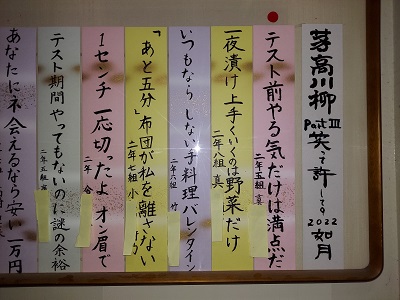 芽高川柳 Part III 笑って許して 2022 如月
テスト前やる気だけは満点だ
二年五組 真
一夜漬け上手くいくのは野菜だけ
二年八組 真
いつもなら しない手料理バレンタイン
二年六組 竹
「あと五分」布団が私を離さない
二年七組 小
1センチ 一応切ったよ オン眉で
二年 合
テスト期間やってもないのに謎の余裕
二年五組
あなたにネ 会えるなら安い一万円